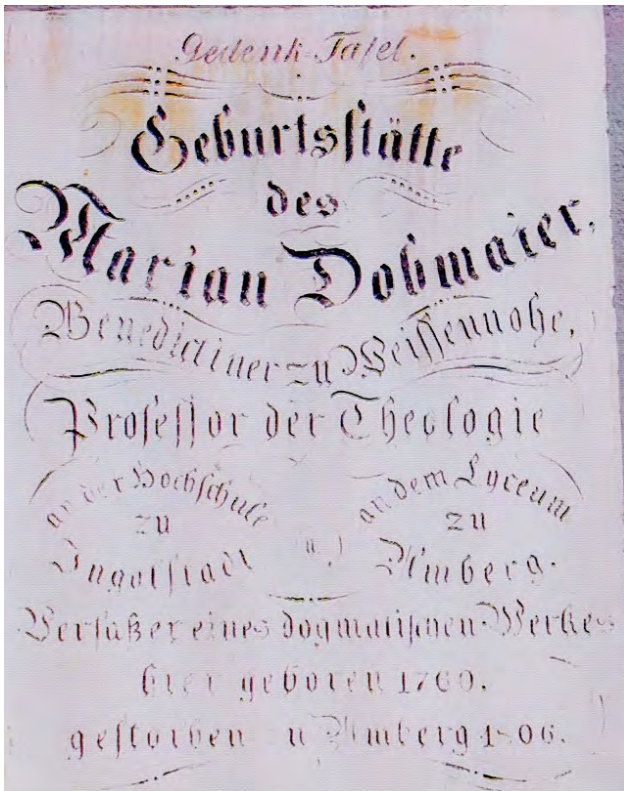 Gedenk-Tafel.
Geburtsstätte
des
Marian Dobmaier,
Benedictiner zu Weissennohe,
Professor der Theologie
an der Hochschule
zu
Ingolstadt
(u.)
an dem Lyceum
zu
Amberg.
Verfaßer eines dogmatischen Werkes
hier geboren
gestorben Amberg 1806.